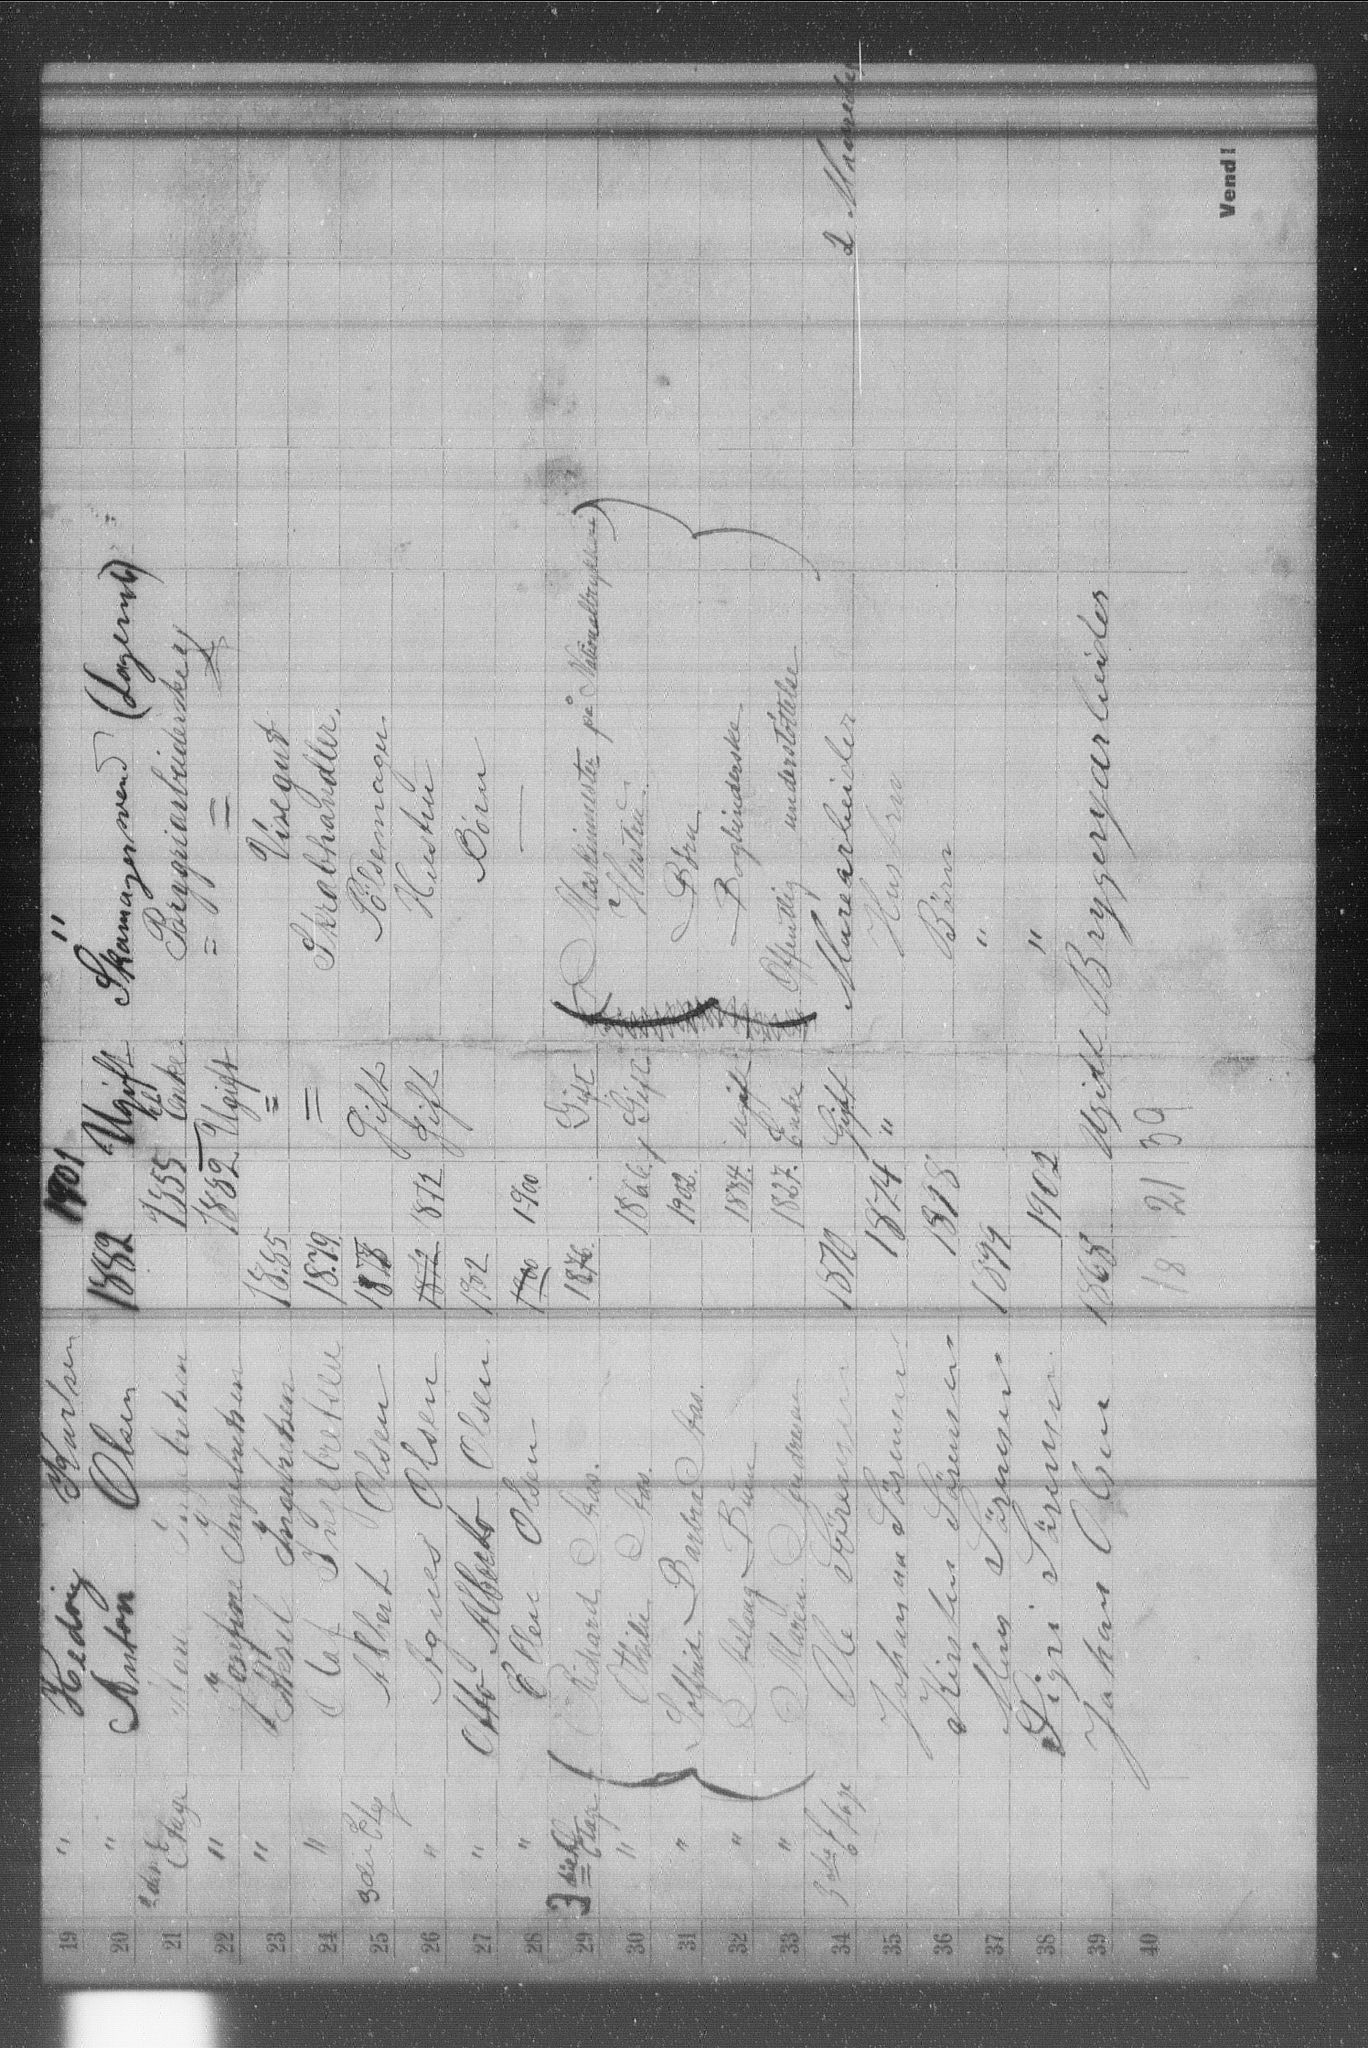 19 " Hedvig Karlsen 1901 "
20 " Anton Olsen 1882 Ugift Skomagersvend (Lagerarb)
21 2den Etage Ingebretsen 1855 Enke Bryggeriarbeiderske
22 " Ingebretsen 1882 Ugift = =
23 " Aksel Ingebretsen 1885 = Visegut
24 " Olaf Ingebretsen 1879 = Skrabhandler.
25 3die Etg Albert Olsen 1878 Gift Pölsemager
26 " Agnes Olsen 1872 Gift Hustru
27 " Otto Alberto Olsen 1902 Børn
28 " Ellen Olsen 1900 —
29 3die Etage Richard Aas. 1876. Gift Maskinmester på Nationaltrykkeri
30 " Othilie Aas. 1866. Gift Hustru.
31 " Solveig Barbra Aas. 1902. Børn
32 " Aslaug Bruun 1884. ugift Bogbinderske
33 " Maren Andresen 1827. Enke Offentlig understöttelse
34 3die Etage Ole Sörensen 1870 Gift Murearbeider 2 Maaneder
35 Johanna Sörensen 1874 " Hustru
36 Kirsten Sörensen 1898 Børn
37 Sörensen 1899 "
38 Sigri Sörensen. 1902 "
39 Johan Olsen 1868 Ugift Bryggeryarbeider
40 18 21 39
Vend!